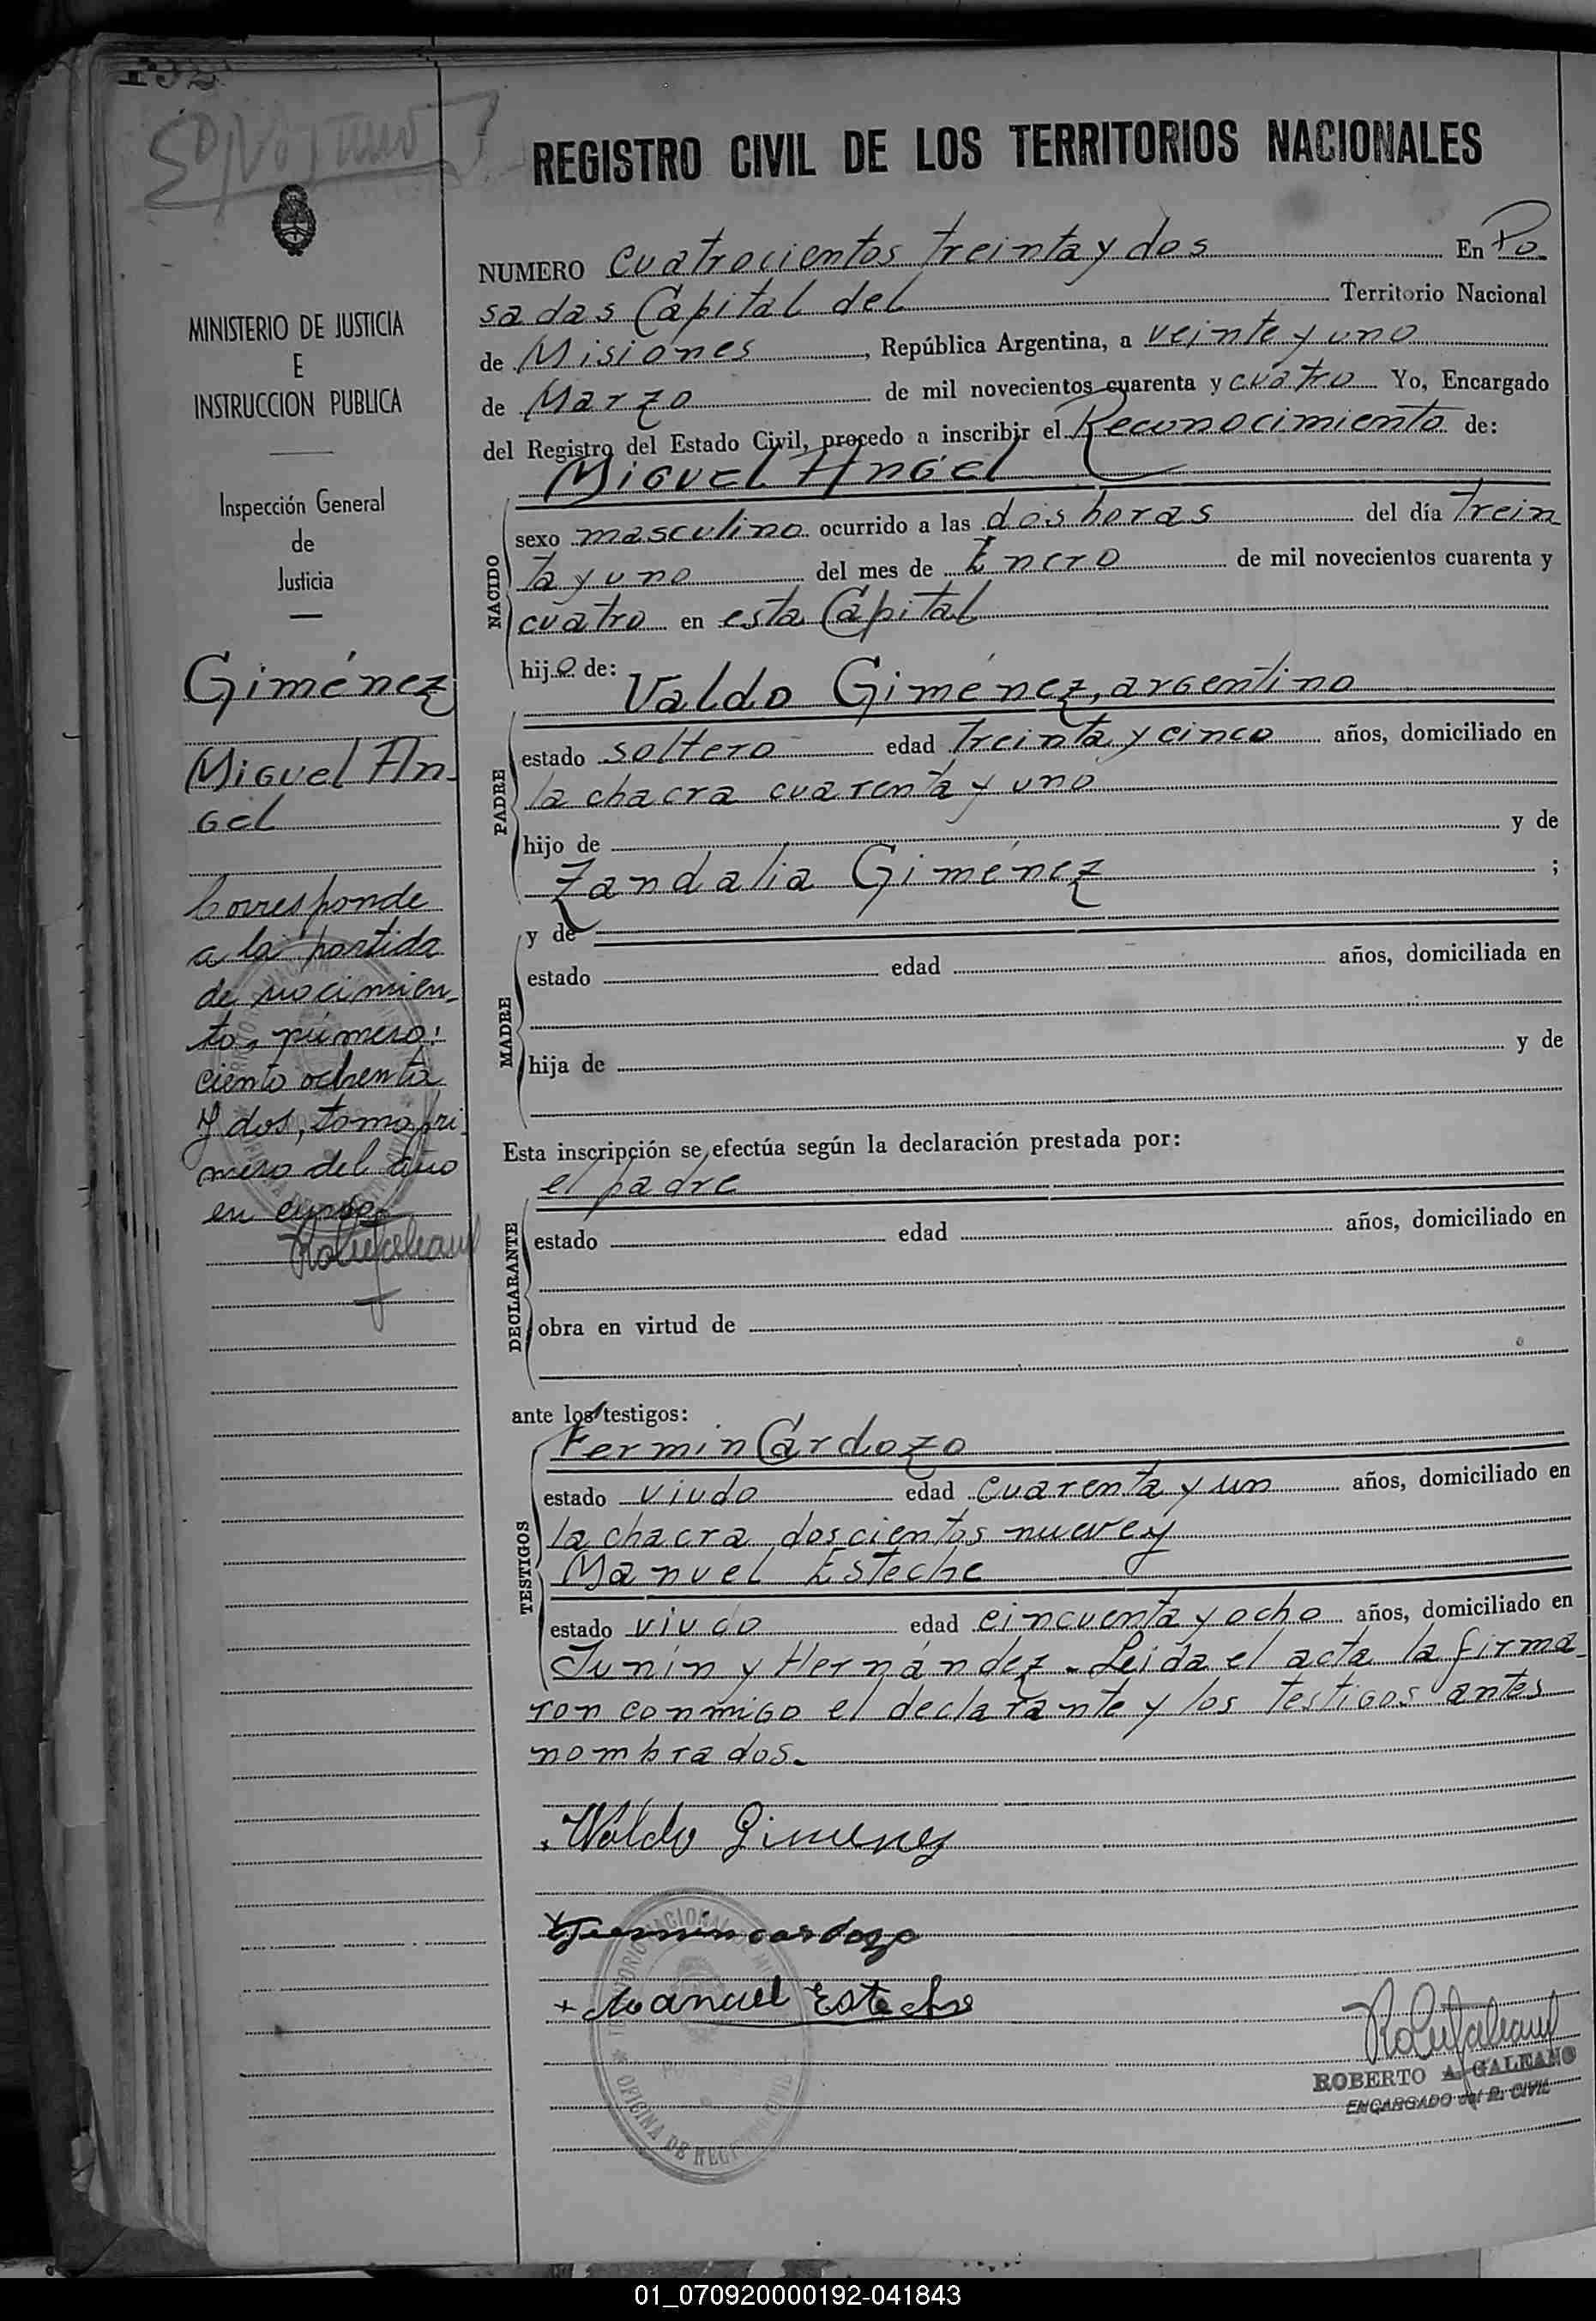 432
REGISTRO CIVIL DE LOS TERRITORIOS NACIONALES
MINISTERIO DE JUSTICIA
E
INSTRUCCION PUBLICA
Inspección General
de
Justicia
Giménez
Miguel An-
gel
Corresponde
a la partida
de nacimien-
to, número:
ciento ochenta
y dos, tomo pri-
mero del año
en curso.
NUMERO cuatrocientos treinta y dos En Po
sadas Capital del Territorio Nacional
de Misiones, República Argentina, a veinte y uno
de Marzo de mil novecientos cuarenta y cuatro Yo, Encargado
del Registro del Estado Civil, procedo a inscribir el Reconocimiento de:
Miguel Angel
NACIDO
sexo masculino ocurrido a las dos horas del día trein
ta y uno del mes de Enero de mil novecientos cuarenta y
cuatro en esta Capital
hijo de:
Valdo Giménez, argentino
PADRE
estado soltero edad treinta y cinco años, domiciliado en
la chacra cuarenta y uno
hijo de y de
Zandalia Giménez ;
y de
MADRE
estado edad años, domiciliada en
hija de y de
Esta inscripción se efectúa según la declaración prestada por:
el padre
DECLARANTE
estado edad años, domiciliado en
obra en virtud de
ante los testigos:
Fermin Cardozo
TESTIGOS
estado viudo edad cuarenta y un años, domiciliado en
la chacra doscientos nueve y
Manuel Esteche
estado viudo edad cincuenta y ocho años, domiciliado en
Junín y Hernández. Leida el acta la firma-
ron conmigo el declarante y los testigos antes
nombrados.
Waldo Gimenez
Fermin cardozo
Manuel Esteche
ROBERTO A. GALEANO
ENCARGADO del R. CIVIL
OFICINA DE REGISTRO CIVIL
01_070920000192-041843